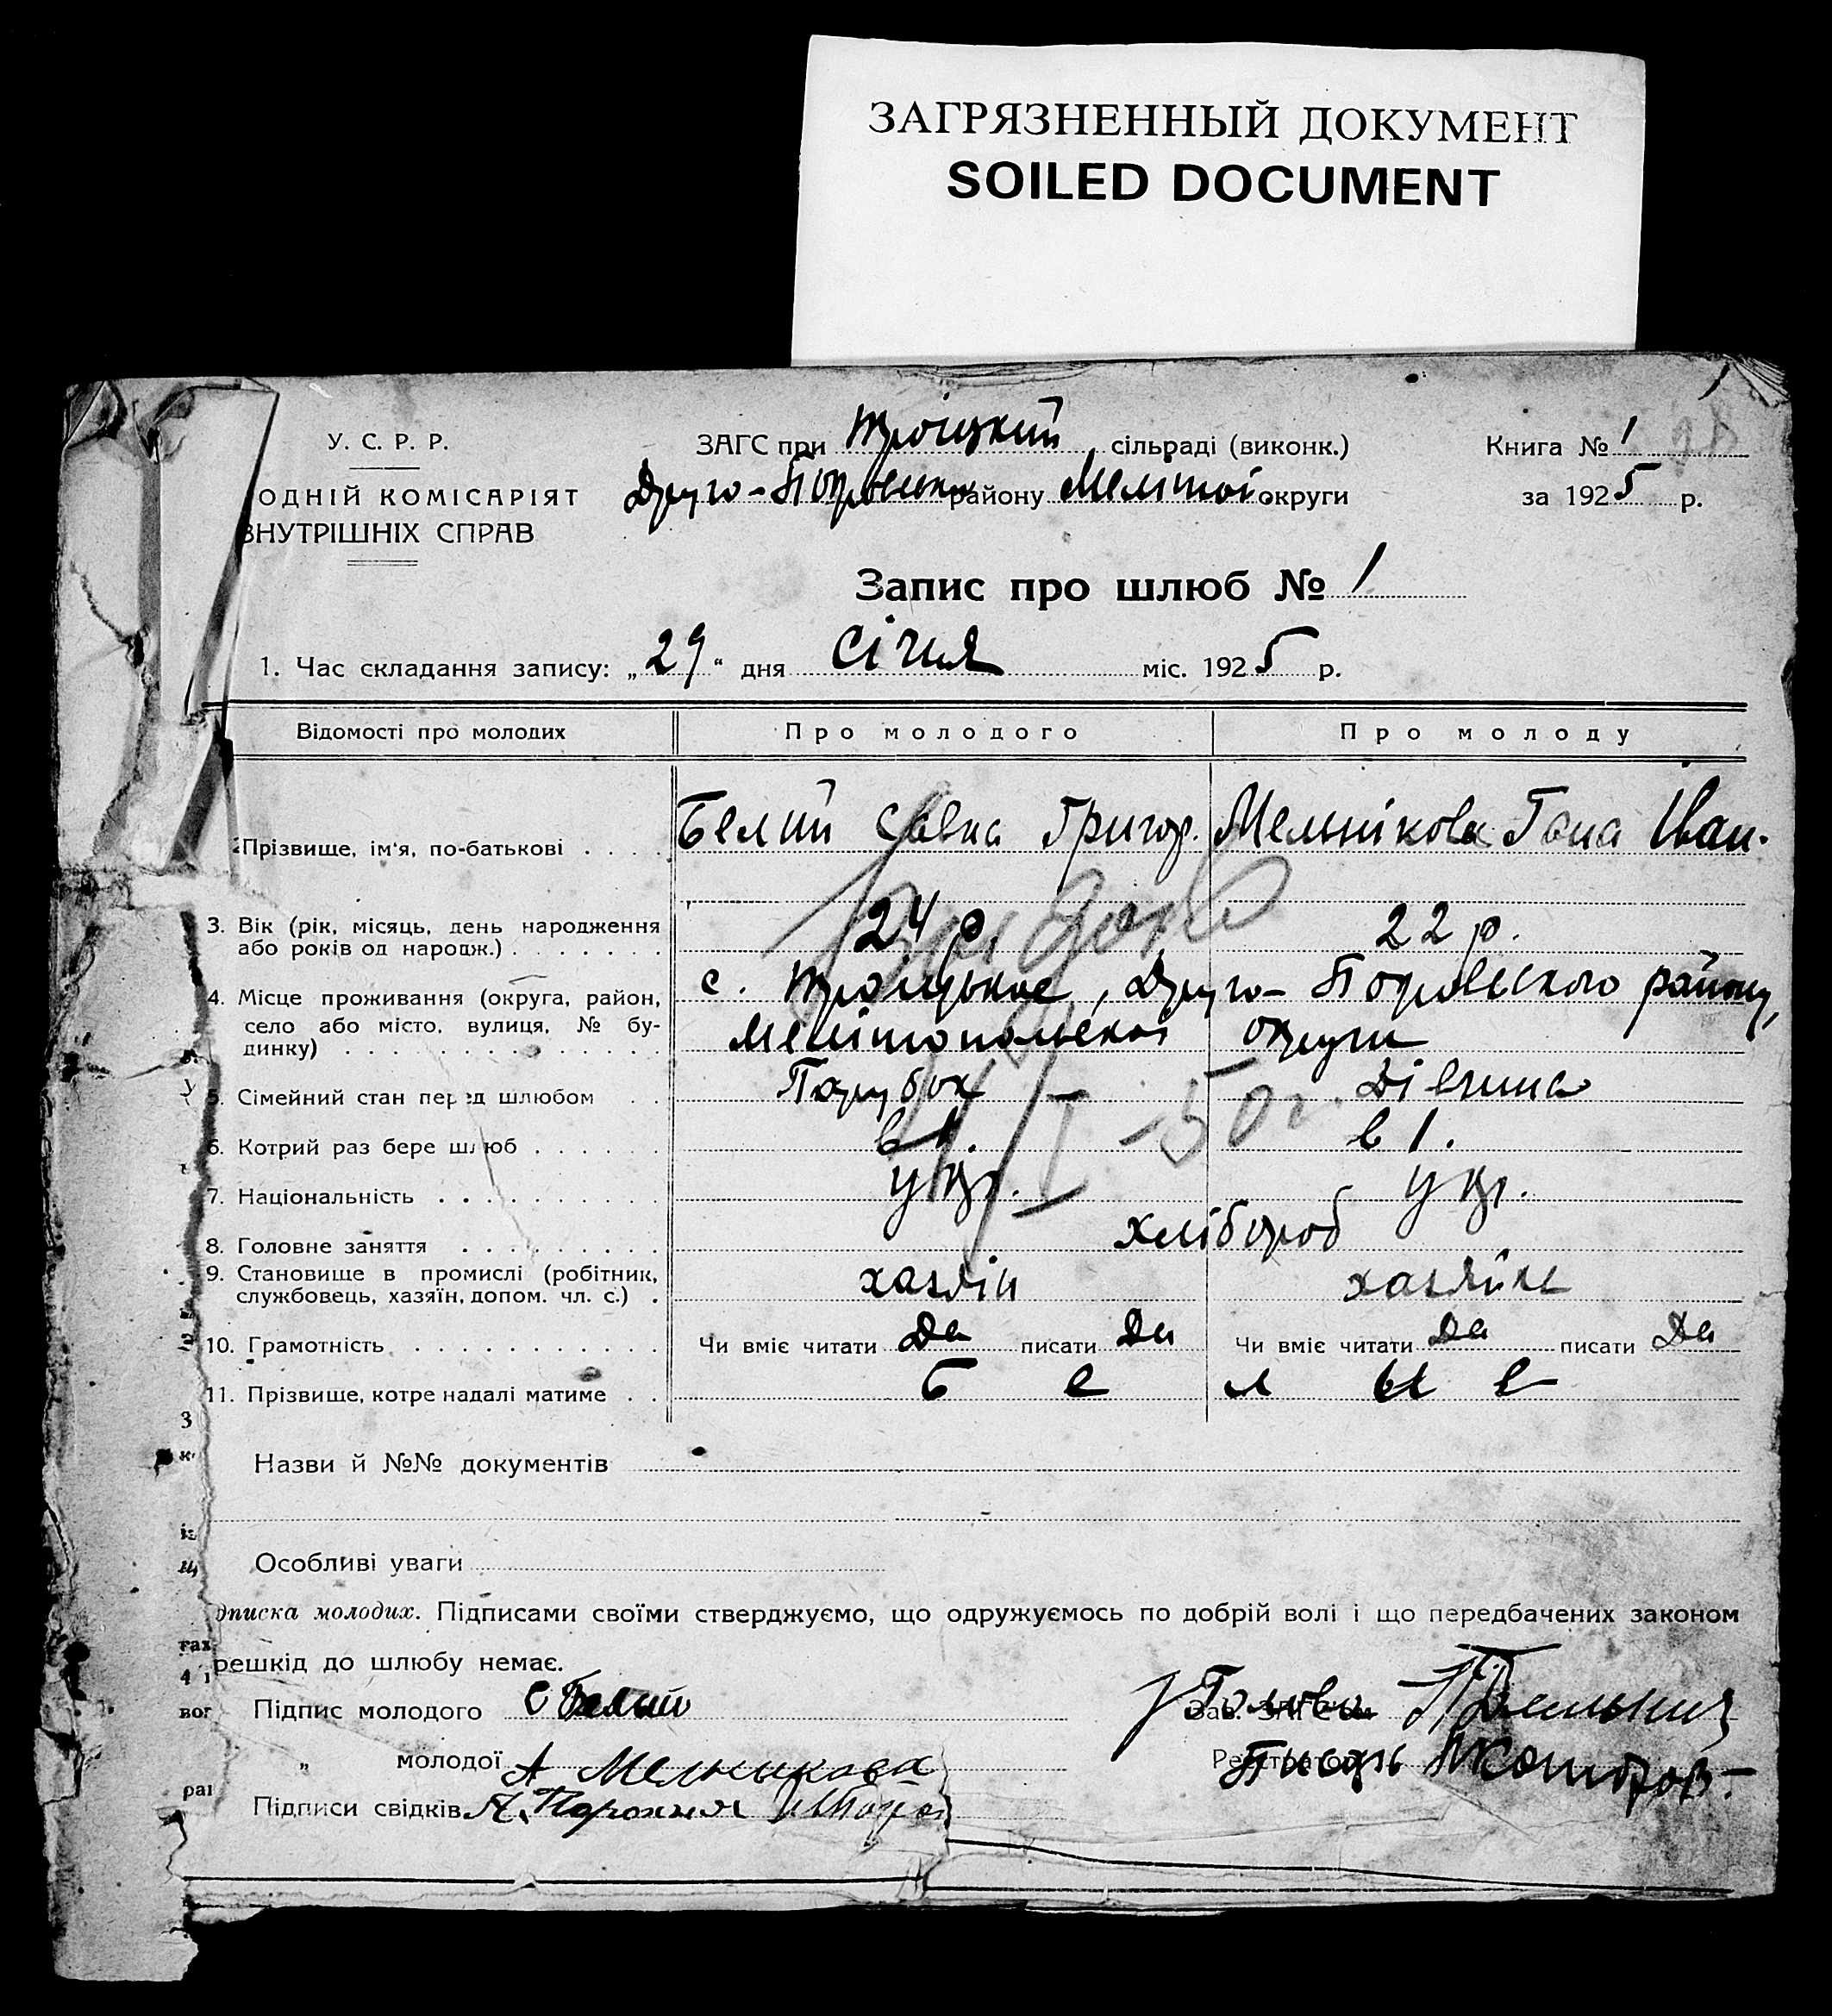 ЗАГРЯЗНЕННЫЙ ДОКУМЕНТ
SOILED DOCUMENT
У. С. Р. Р.
ОДНІЙ КОМІСАРІЯТ
ВНУТРІШНІХ СПРАВ
ЗАГС при Троіцкий сільраді (виконк.)
Друго- району Меліт округи
Книга № 1
за 1925 р.
Запис про шлюб № 1
1. Час складання запису: „29“ дня Січня міс. 1925 р.
Відомості про молодих Про молодого Про молоду
Прізвище, ім'я, по-батькові Белий Савка Григор. Мельнікова Гана Іван.
3. Вік (рік, місяць, день народження або років од народж.) 24 р. 22 р.
4. Місце проживання (округа, район, село або місто, вулиця, № будинку) с. Троицькое, Друго- району,
Мелітопольскої округи
5. Сімейний стан перед шлюбом Парубок Дівчина
6. Котрий раз бере шлюб в 1. в 1.
7. Національність укр. укр.
8. Головне заняття хлібороб
9. Становище в промислі (робітник, службовець, хазяїн, допом. чл. с.) хазяін хазяйка
10. Грамотність Чи вміє читати Да писати Да Чи вміє читати Да писати Да
11. Прізвище, котре надалі матиме Б е л ы е
-50 г.
Назви й №№ документів
Особливі уваги
дписка молодих. Підписами своїми стверджуємо, що одружуємось по добрій волі і що передбачених законом
решкід до шлюбу немає.
Підпис молодого С Белий
Голова
„ молодої А Мельникова
Підписи свідків